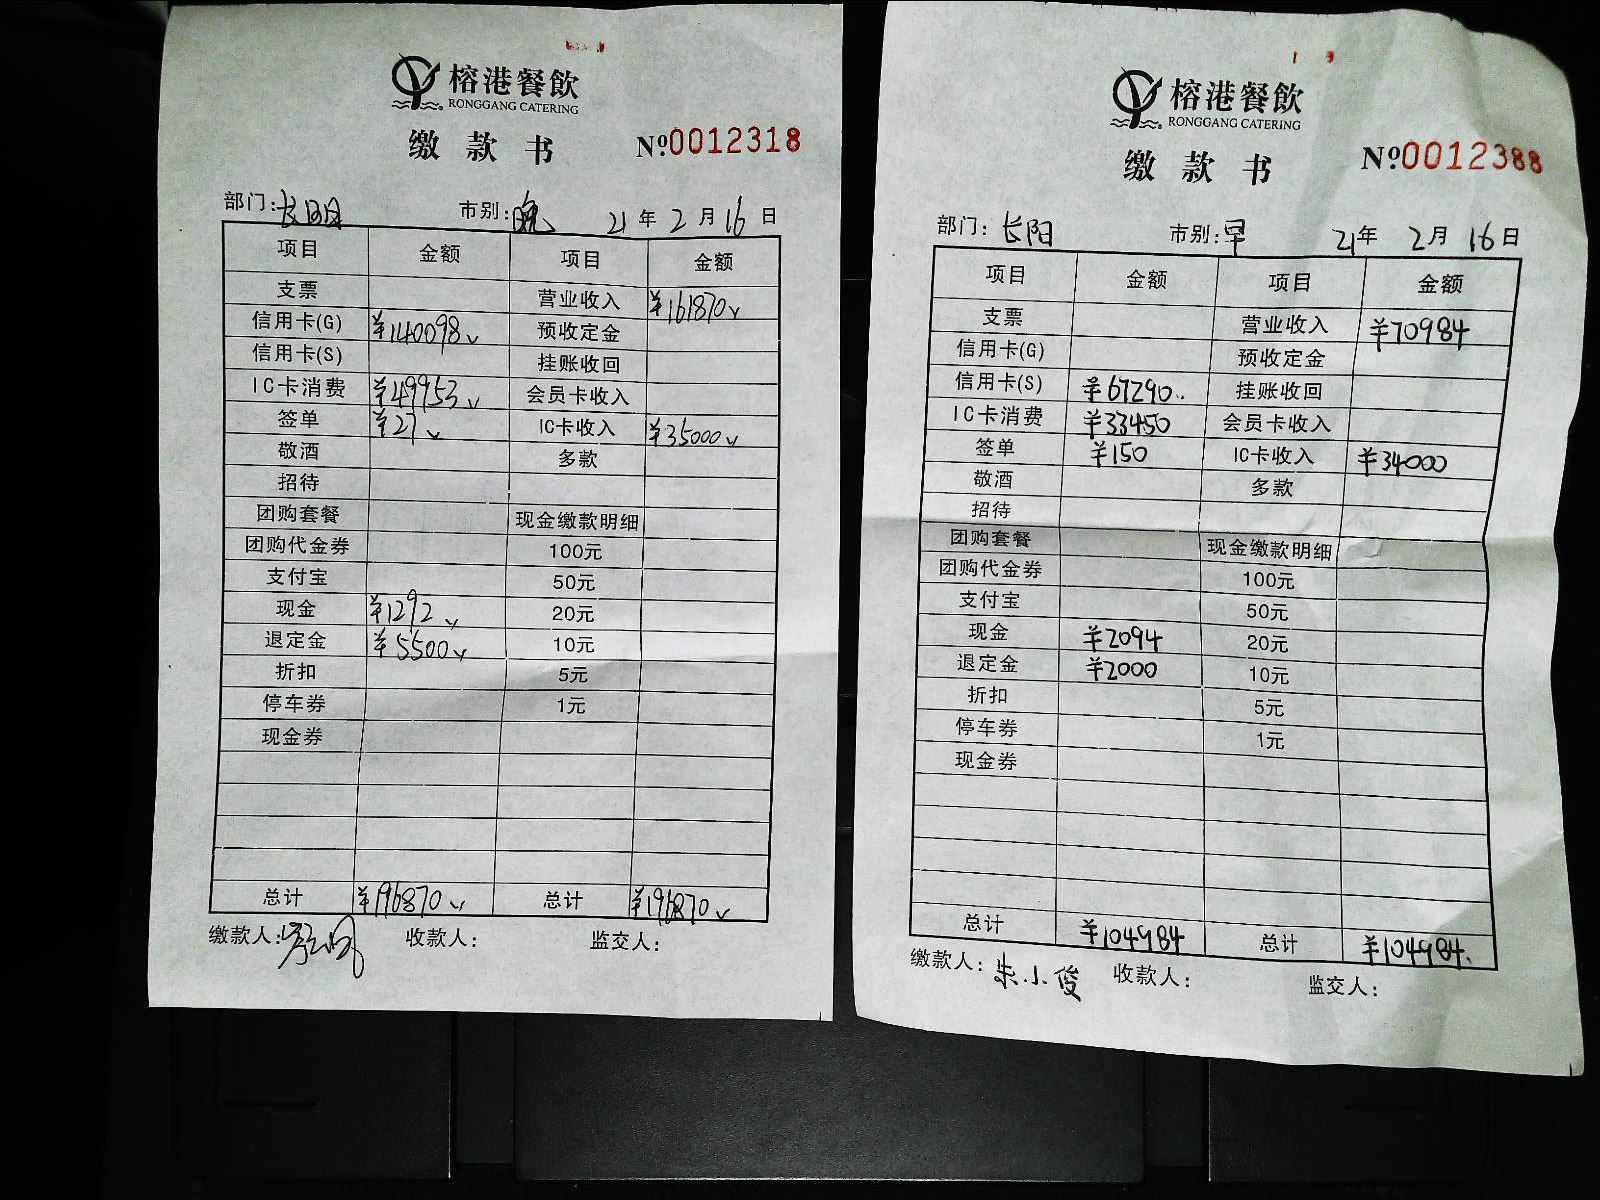 榕港餐飲
RONGGANG CATERING
缴款书
№0012318
部门:长阳 市别:晚 21年2月16日
项目 金额 项目 金额
支票 营业收入 ¥161870
信用卡(G) ¥140098 预收定金
信用卡(S) 挂账收回
IC卡消费 ¥49953 会员卡收入
签单 ¥27 IC卡收入 ¥35000
敬酒 多款
招待
团购套餐 现金缴款明细
团购代金券 100元
支付宝 50元
现金 ¥1292 20元
退定金 ¥5500 10元
折扣 5元
停车券 1元
现金券
总计 ¥196870 总计 ¥196870
缴款人: 收款人: 监交人:
榕港餐飲
RONGGANG CATERING
缴款书
№0012388
部门:长阳 市别:早 21年2月16日
项目 金额 项目 金额
支票 营业收入 ¥70984
信用卡(G) 预收定金
信用卡(S) ¥67290 挂账收回
IC卡消费 ¥33450 会员卡收入
签单 ¥150 IC卡收入 ¥34000
敬酒 多款
招待
团购套餐 现金缴款明细
团购代金券 100元
支付宝 50元
现金 ¥2094 20元
退定金 ¥2000 10元
折扣 5元
停车券 1元
现金券
总计 ¥104984 总计 ¥104984
缴款人:朱小俊 收款人: 监交人: